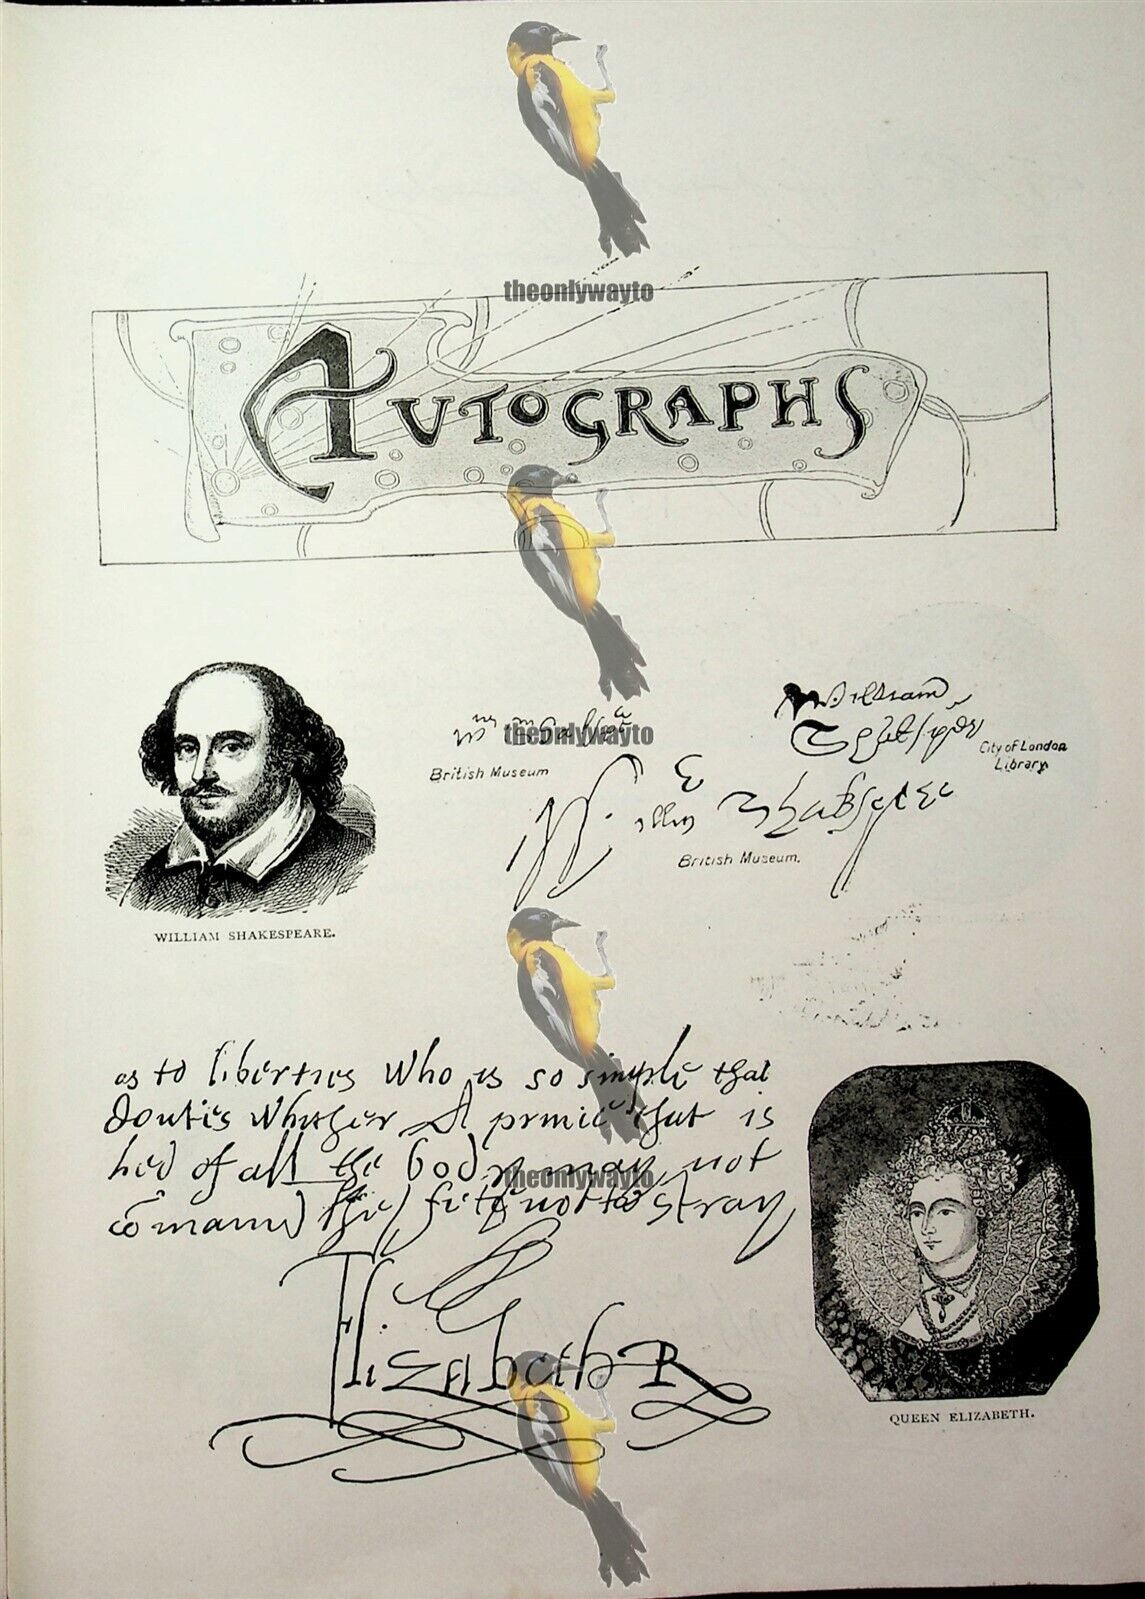 theonlywayto
AUTOGRAPHS
William
British Museum
City of London
Library
theonlywayto
British Museum.
WILLIAM SHAKESPEARE.
as to liberties who is so simple that
doutes whither A prince that is
hed of all the body may not
theonlywayto
cōmand the fete not to stray
Elizabeth R
QUEEN ELIZABETH.